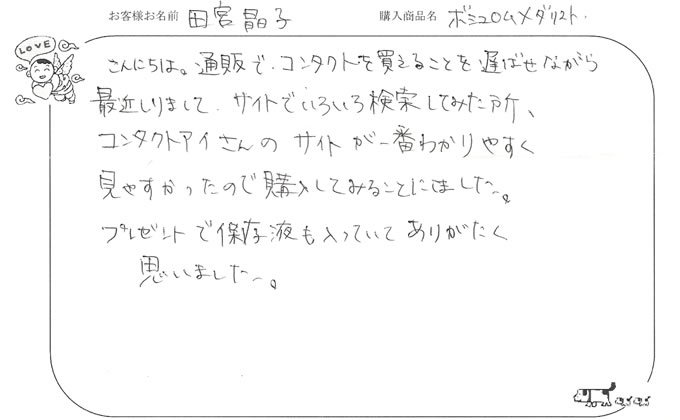 お客様お名前 田宮晶子 購入商品名 ボシュロムメダリスト.
LOVE
こんにちは。通販で、コンタクトを買えることを遅ばせながら
最近しりまして、サイトでいろいろ検索してみた所、
コンタクトアイさんの サイト が一番わかりやすく
見やすかったので購入してみることにしました〜。
プレゼントで保存液も入っていて ありがたく
思いました〜。